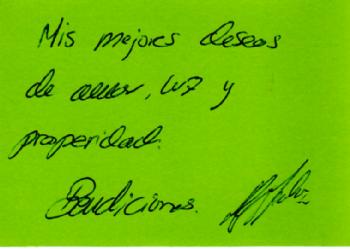 Mis mejores deseos
de amor, luz y
prosperidad.
Bendiciones.